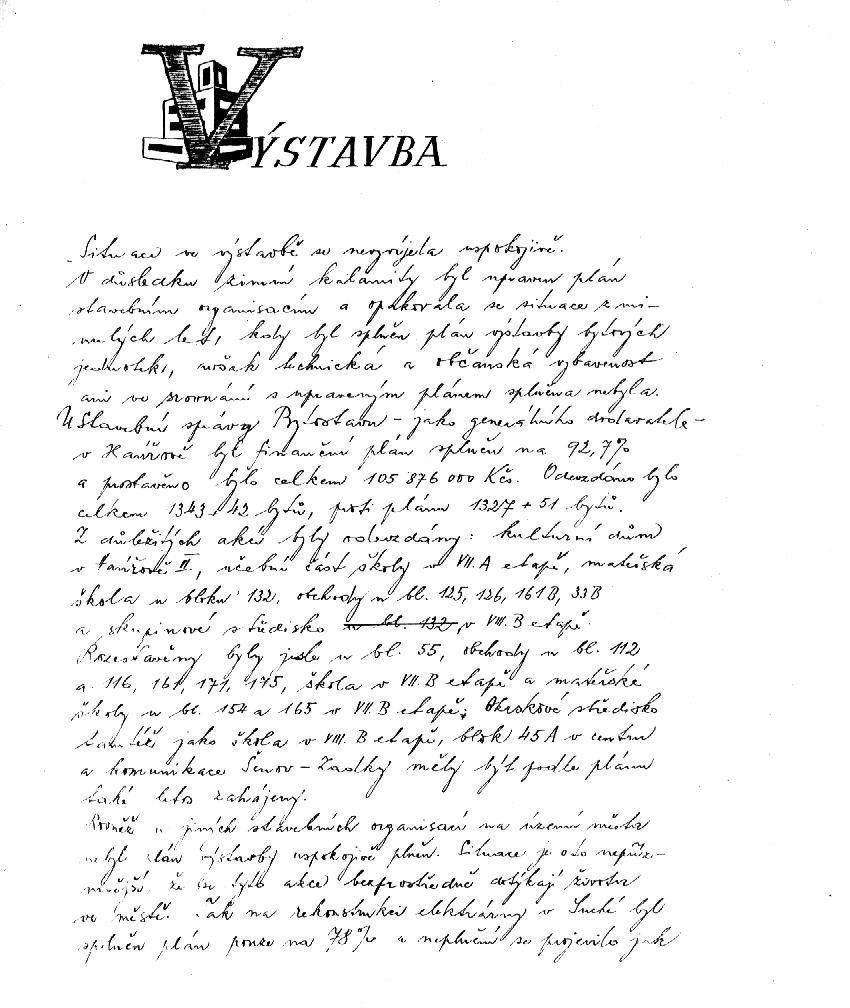 VÝSTAVBA
Situace ve výstavbě se nevyvíjela uspokojivě.
V důsledku zimní kalamity byl upraven plán
stavebním organisacím a opakovala se situace z mi-
nulých let, kdy byl splněn plán výstavby bytových
jednotek, avšak technická a občanská vybavenost
ani ve srovnání s upraveným plánem splněna nebyla.
U Stavební správy Bytostavu - jako generálního dodavatele -
v Havířově byl finanční plán splněn na 92,7%
a prostavěno bylo celkem 105 876 000 Kčs. Odevzdáno bylo
celkem 1343 + 42 bytů, proti plánu 1327 + 51 bytů.
Z důležitých akcí byly odevzdány: kulturní dům
v Havířově II., učební část školy v VII.A etapě, mateřská
škola u bloku 132, obchody u bl. 125, 126, 161B, 33B
a skupinové středisko u bl. 132 v VIII.B etapě.
Rozestavěny byly jesle u bl. 55, obchody u bl. 112
a 116, 161, 171, 175, škola v VII.B etapě a mateřské
školy u bl. 154 a 165 v VII.B etapě; Okrskové středisko
tamtéž jako škola v VIII.B etapě, blok 45A v centru
a komunikace Šenov-Žadky měly být podle plánu
také letos zahájeny.
Rovněž u jiných stavebních organisací na území města
nebyl plán výstavby uspokojivě plněn. Situace je o to nepříz-
nivější, že se tyto akce bezprostředně dotýkají života
ve městě. Tak na rekonstrukci elektrárny v Suché byl
splněn plán pouze na 78% a neplnění se projevilo jak